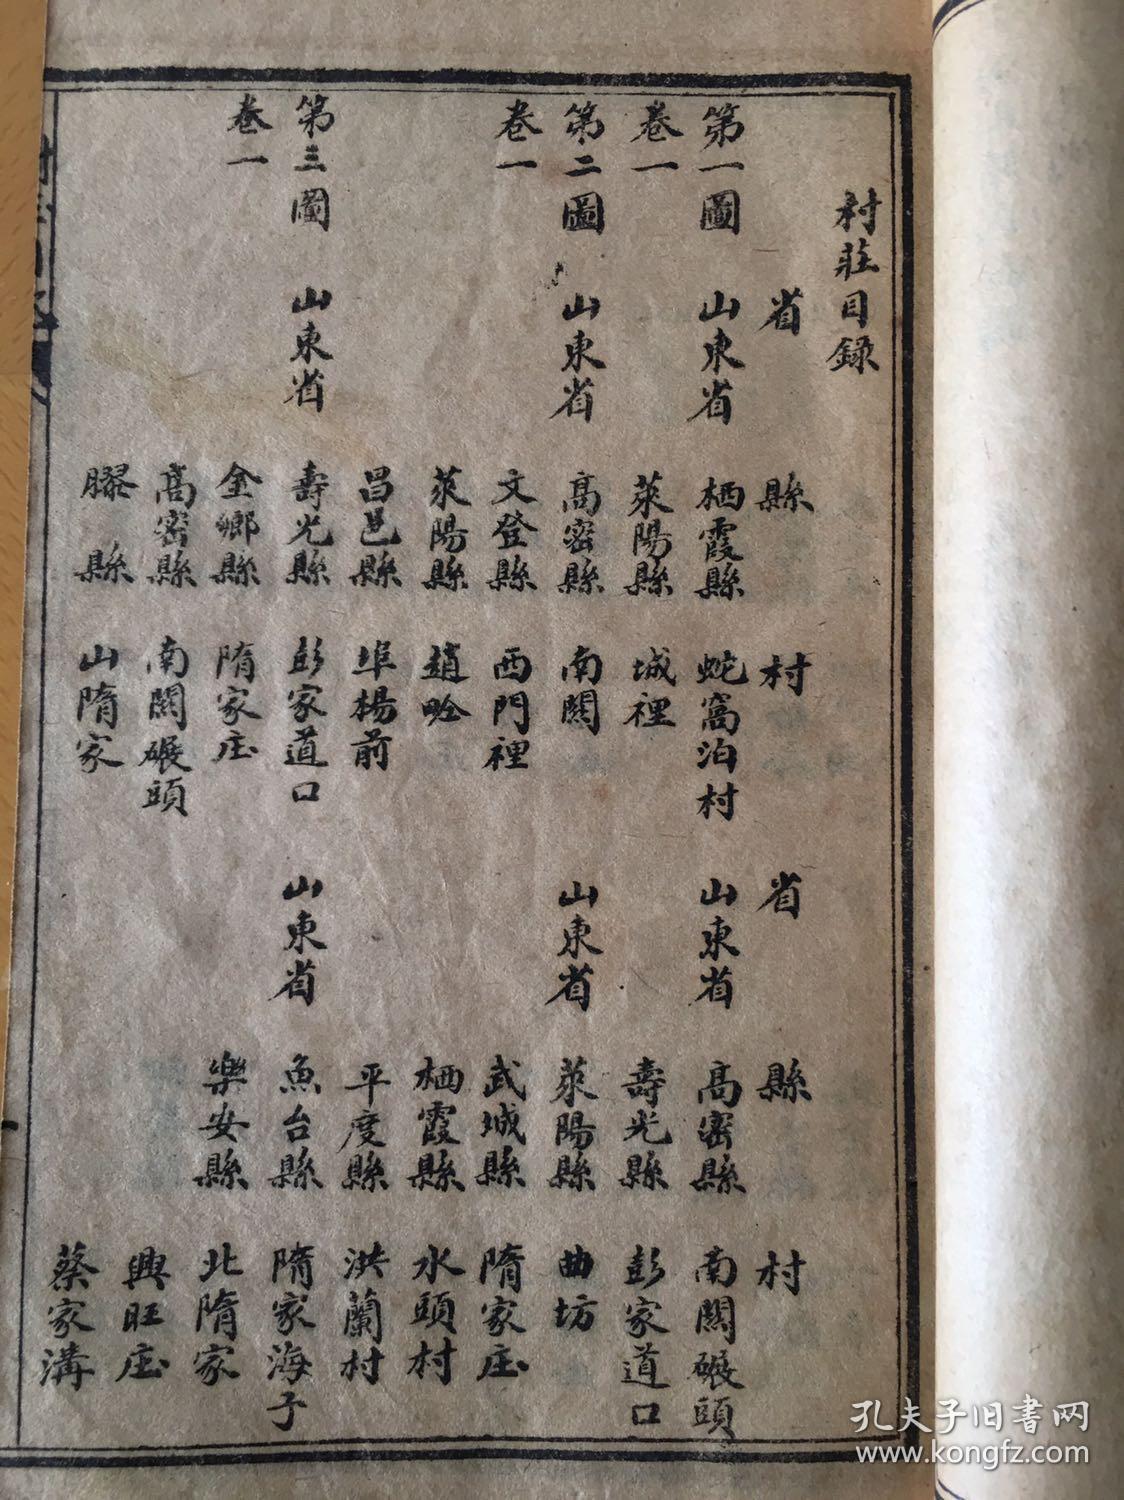 村莊目錄
省 縣 村 省 縣 村
第一圖 山東省 栖霞縣 蛇窩泊村 山東省 高密縣 南關碾頭
卷一 萊陽縣 城裡 壽光縣 彭家道口
第二圖 山東省 高密縣 南關 山東省 萊陽縣 曲坊
卷一 文登縣 西門裡 武城縣 隋家庄
萊陽縣 趙 栖霞縣 水頭村
昌邑縣 埠楊前 平度縣 洪蘭村
第三圖 山東省 壽光縣 彭家道口 山東省 魚台縣 隋家海子
卷一 金鄉縣 隋家庄 樂安縣 北隋家
高密縣 南關碾頭 興旺庄
膠縣 山隋家 蔡家溝
孔夫子旧書网
www.kongfz.com